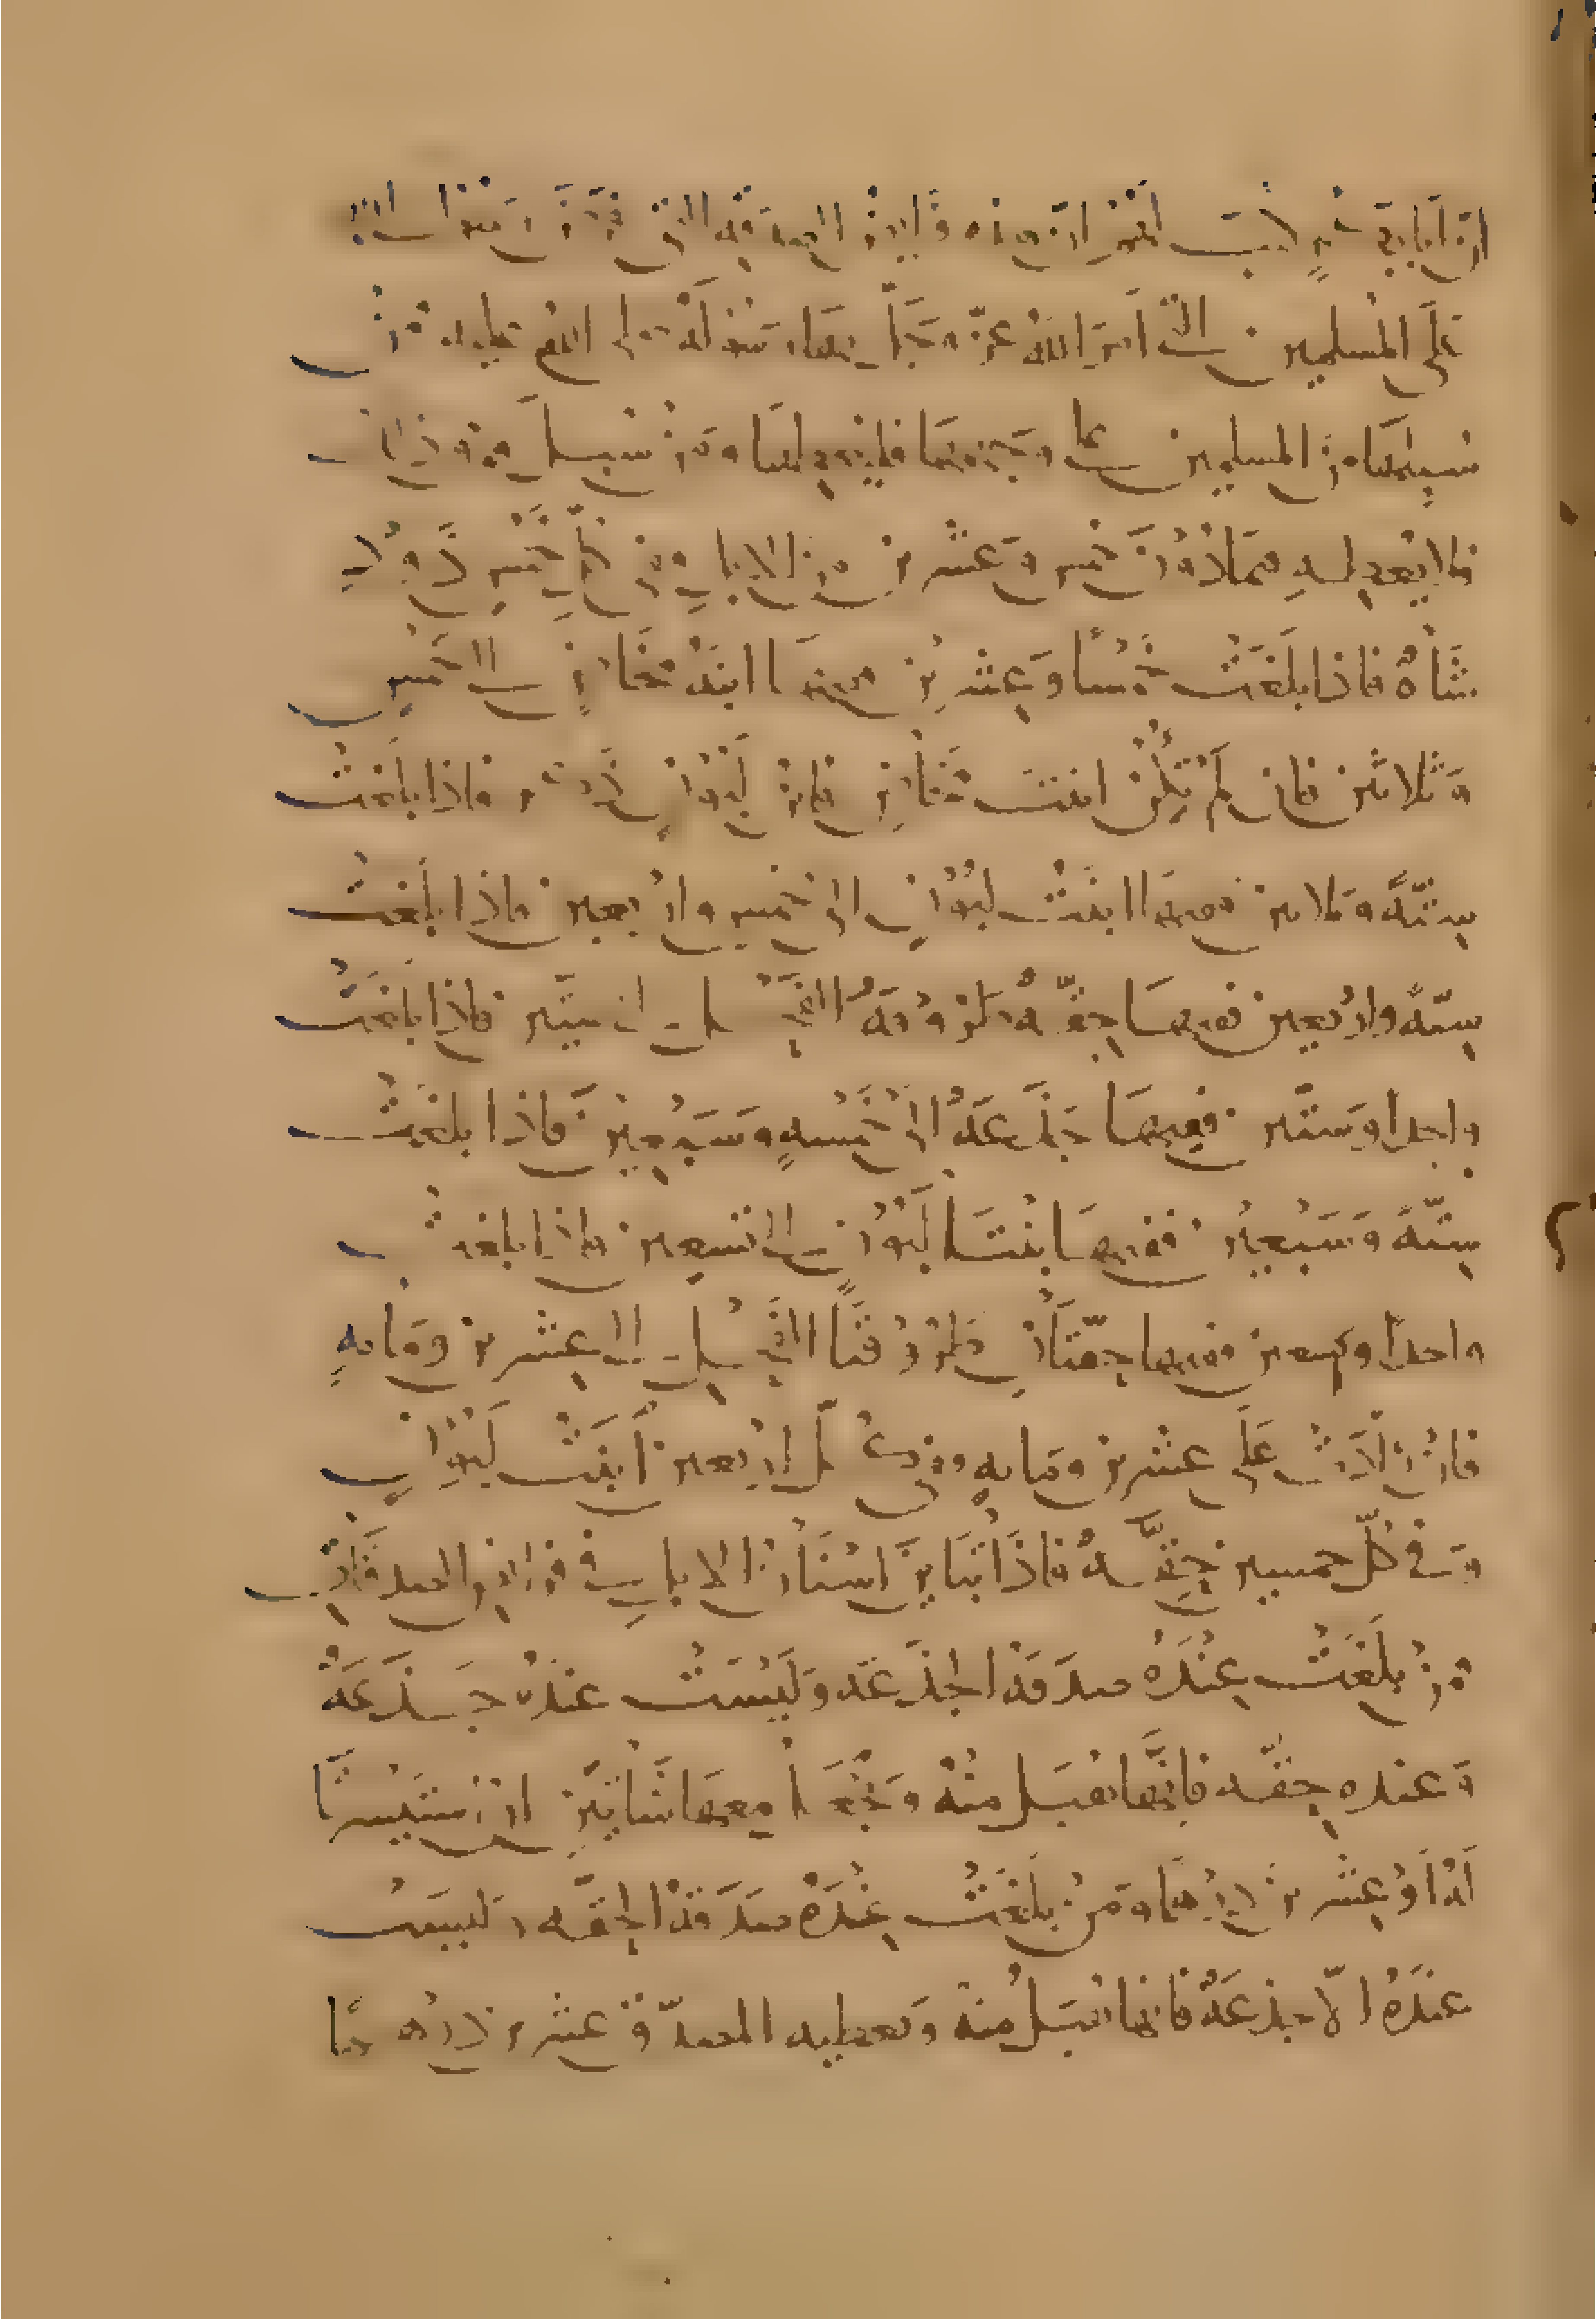 ان ابا بكر كتب لهم ان هذه فرايض الصدقة التي فرض رسول الله
على المسلمين التي امر الله عزّ وجلّ بها رسوله صلى الله عليه فمن
سيلها من المسلمين على وجهها فليعطها ومن سيل فوق ذلك
فلا يعطه فيما دون خمس وعشرين من الابل في كل خمس ذود
شاة فاذا بلغت خمسا وعشرين ففيها ابنة مخاض الى خمس
وثلاثين فان لم تكن ابنت مخاض فابن لبون ذكر فاذا بلغت
ستة وثلاثين ففيها ابنت لبون الى خمس واربعين فاذا بلغت
ستة واربعين ففيها حقة طروقة الفحل الى ستين فاذا بلغت
واحدا وستين ففيها جذعة الى خمسة وسبعين فاذا بلغت
ستة وسبعين ففيها ابنتا لبون الى تسعين فاذا بلغت
واحدا وتسعين ففيها حقتان طروقتا الفحل الى عشرين ومايه
فان زادت على عشرين ومايه ففي كل اربعين ابنت لبون
وفي كل خمسين حقة فاذا تباين اسنان الابل في فرايض الصدقات
من بلغت عنده صدقة الجذعة وليست عنده جذعة
وعنده حقه فانها تقبل منه ويجعل معها شاتين ان استيسرتا
له او عشرين درهما ومن بلغت عنده صدقة الحقه وليست
عنده الا جذعة فانها تقبل منه ويعطيه المصدق عشرين درهما